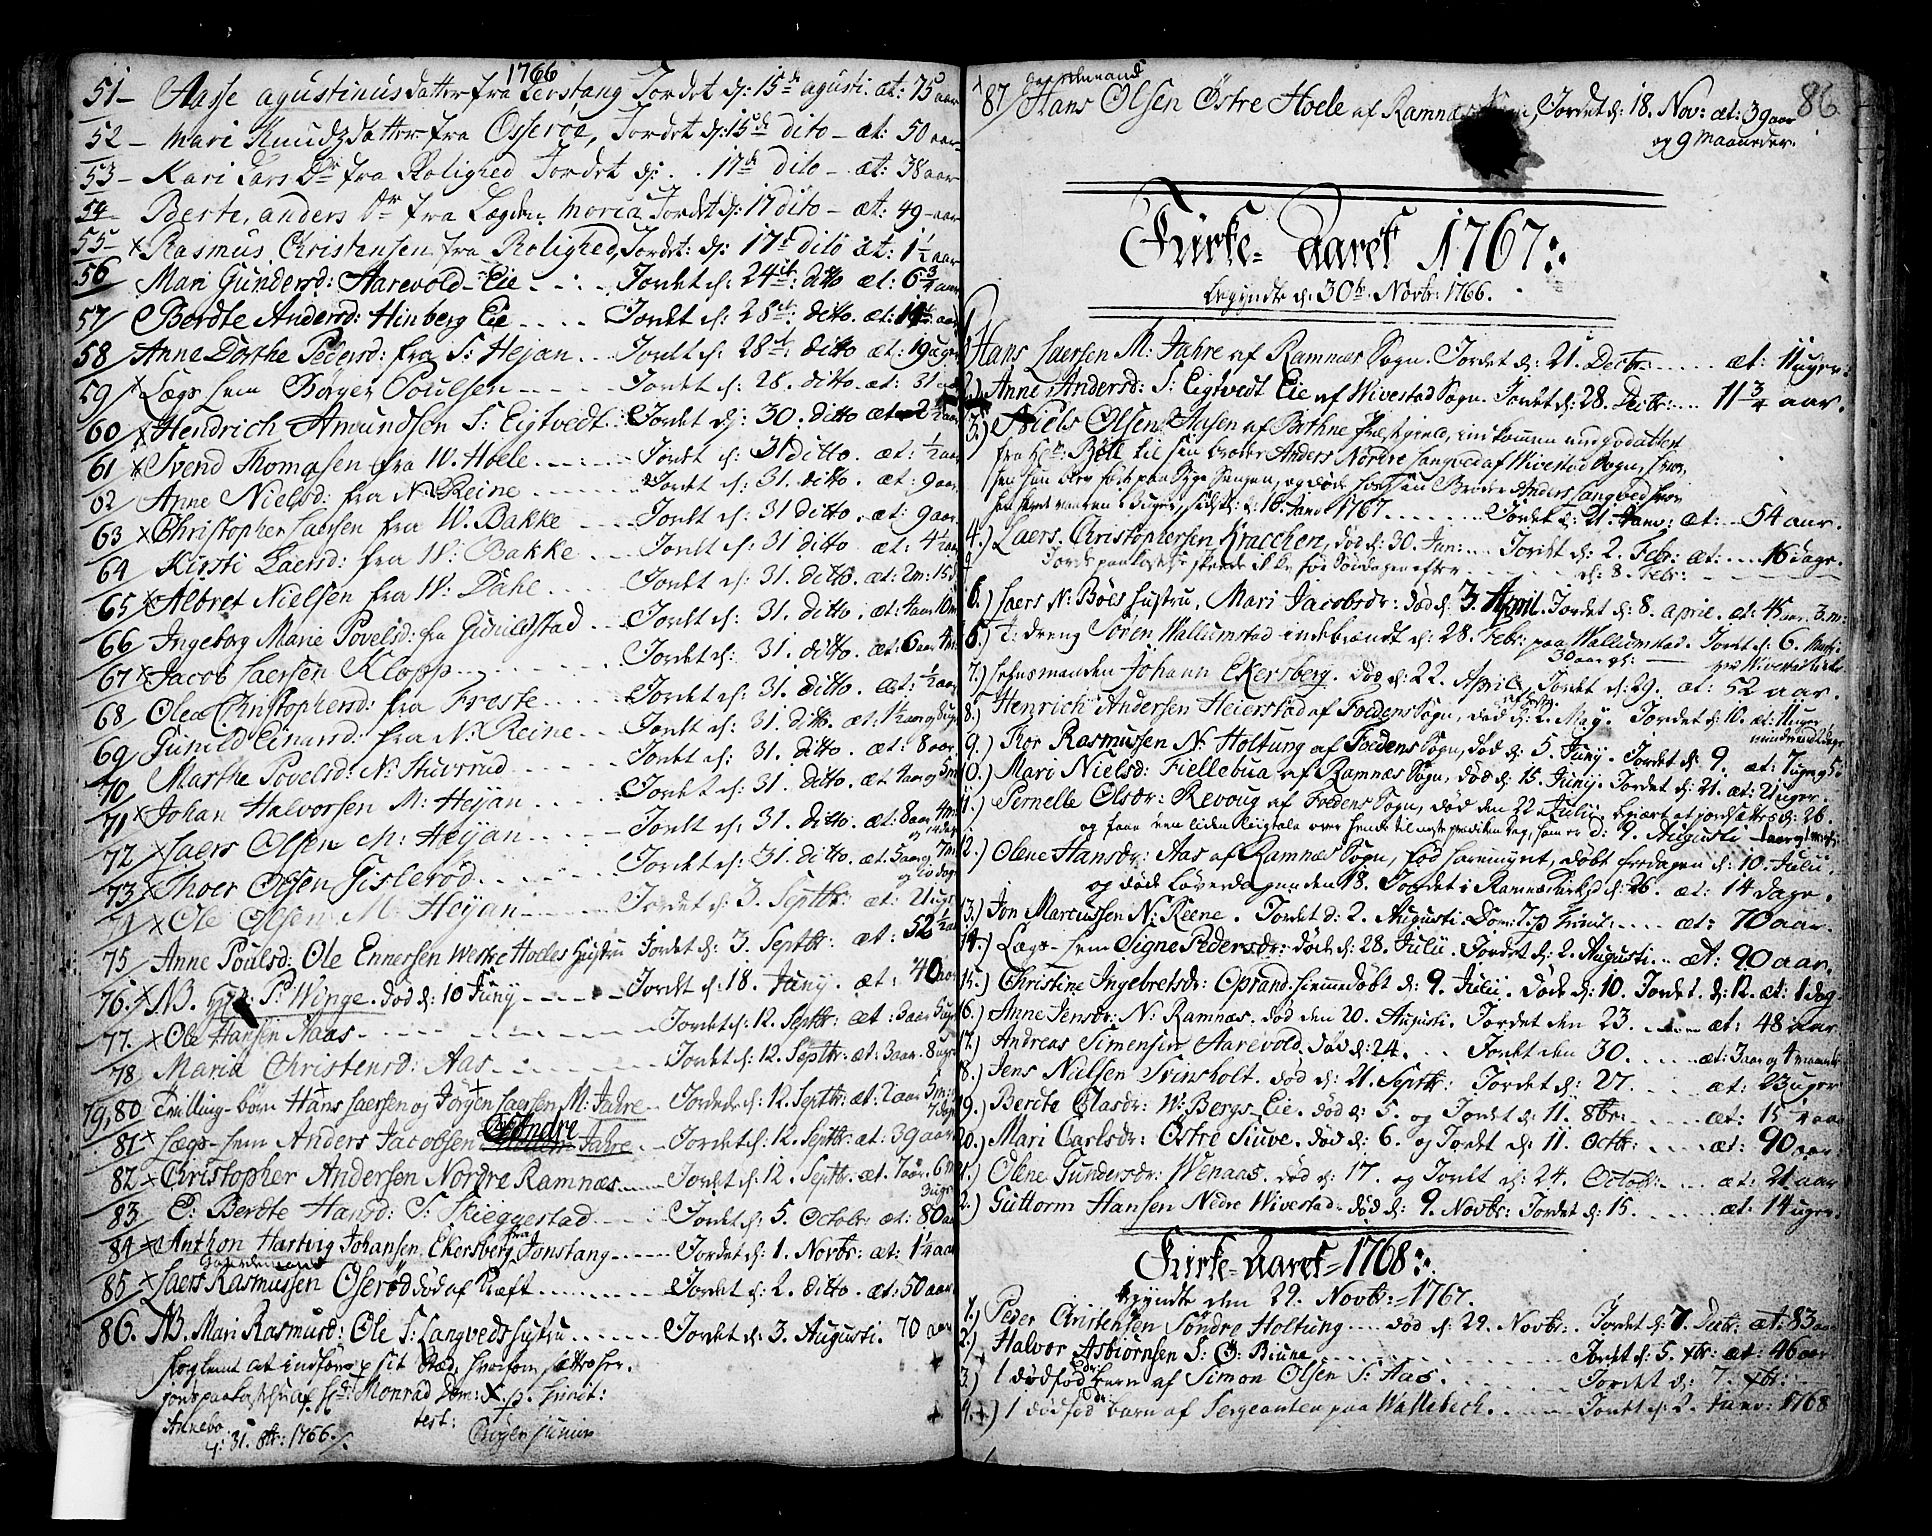 1766
51 - Aasse agustinus datter fra Leerstang Jordet d: 15de agusti. æt: 75 aar
52 - Mari Knudz datter fra Osseröe, Jordet d: 15de dito - æt: 50 aar
53 - Kari Lars Dr fra Rolighed Jordet d: . . 17de dito - æt: 38 aar
54 Berte, anders Dr fra Lægden Moria Jordet d: 17 dito - æt: 49 - aar
55 - x Rasmus Christensen fra Rolighed, Jordet: d: 17de dito æt: 1 1/2 aar
56 Mari Gundersd: Aarevold-Eie - . - . Jordet d: 24de: ditto æt: 6 3/4 aar
57/ Berdte Andersd: Hinberg Eie . . . . Jordet d: 28de: ditto. æt: aar
58/ Anne Dorthe Pedersd: fra S: Hejan . . . Jordet d: 28de: ditto æt: 19 uger
59/ x Lægs Lem Borger Poulsen - - - - Jordet d: 28. ditto. æt: 31
60/ x Hendrich Amundsen S: Eigtvedt: Jordet d: 30. ditto æt 2 1/2 aar
61 x Svend Thomasen fra W. Hoele . . - . . Jordet d: 31 ditto. æt: 1/2 aar
62/ Anne Nielsd: fra N: Reine - - - - - Jordet d: 31. ditto. æt: 9 aar
63 x Christopher Laersen fra W. Bakke . . . Jordet d: 31 ditto. æt: 9 aar
64 Kirsti Laersd: fra W: Bakke . . . Jordet d: 31 ditto. æt: 4 1/2 aar
65 x Albret Nielsen fra W. Dahl . . . . Jordet d: 31. ditto. æt: 2m: 15d
66 Ingeborg Marie Povelsd: fra Gunildstad . . Jordet d: 31. ditto. æt: 4 aar 10 m:
67 x Jacob Laersen Klopp . . . . Jordet d: 31. ditto. æt: 6 aar
68 Olea Christophersd: fra Freste . . . Jordet d: 31. ditto. æt: 1/2 aar
69 Gunild Einersd: fra N: Reine - - Jordet d: 31. ditto. æt: 1 1/2 aar og
70 Marthe Povelsd: N: Stuvsrud . . . Jordet d: 31. ditto. æt: 8 aar
71 x Johan Halvorsen M: Heijan . . . . Jordet d: 31. ditto. æt 4 aar og 5m
72 x Laers Olsen M: Heijan . . . . Jordet d: 31. ditto. æt: 8 aar 4m:
73 x Thoer Olsen Gislerød . . . . Jordet d: 31. ditto. æt: 5 aar 7m og 20 dag
74 x Ole Olsen M: Heijan . . . . Jordet d: 3. Septbr: æt: 2 uger
75 Anne Poulsd: Ole Ennersen Westre Hoeles Hustru Jordet d: 3. Septbr: æt: 52 1/2 aar
76. x NB. P: Winge. død d: 10 Junij - - - Jordet d: 18. Junij. æt: 40 aar
77. x Ole Hansen Aaas - . - . - . Jordet d: 12. Septbr: æt: 3 aar 5 uger
78 Maria Christensd: Aas - . . . . Jordet d: 12. Septbr: æt: 3 aar 8 uger
79, 80 Tvilling-børn Hans Laersen og Jörgen Laersen M: Jahre . . Jordede d: 12. Septbr: æt: 2 aar 5m:
81 x Lægs-Lem Anders Jacobsen Søndre Jahre - - Jordet d: 12. Septbr: æt: 39 aar
82 x Christopher Andersen Nordre Ramnæs . . . . Jordet d: 12. Septbr: æt. 7 aar 6m 3 uger
83 E: Berdte Hansd: S: Skieggestad . . . Jordet d: 5. Octobr: æt: 80 aar
84 x Anthon Hartvig Johansen, Ekersberg fra Jonstang . . . Jordet d: 1. Novbr: æt: 1 1/4 aar
85 x Laers Rasmussen Oserød død af Kræft . . . . Jordet d: 2. ditto. æt: 50 aar
86. NB. Mari Rasmusd: Ole S: Langveds Hustru . . . . . Jordet d: 3. Augusti. 70 aar
forglemt at indføre p: sit Stæd, hvorfor sættes her.
jordspaakastelse af Hr: Monrad Dom: X. p. Trinit:
d: 31. 8br: 1766. test:
87/ Gaardemand Hans Olsen Östre Hoele af Ramnæs Sogn, Jordet d: 18. Nov: æt: 39 aar 86
og 9 Maaneder.
Kirke-Aaret 1767:
begyndte d: 30te. Novbr: 1766.
Hans Laersen M: Jahre af Ramnæs Sogn. Jordet d: 21. Decbr: . . . . æt: 11 uger:
2.) Anne Andersd: S: Eigtvedt Eie af Wivestad Sogn. Jordet d: 28. Decbr: . . . 11 3/4 aar.
3.) Niels Olsen Aasen af Bothne Præstegield, indkommen
fra Hr: Bøll til sin Broder Anders Nordre Langved af Wivestad Sogn,
Sengen, og døde hos sin Broder Anders Langved
d: 16. Janv: 1767 . . . . . . Jordet d: 21. Janv: æt: . . 54 aar.
4.) Laers. Christophersen Kracchen, død d: 30. Jan: . . . Jordet d: 2. Febr: æt: . . . 16 dage.
Jordspaakastelse skeede Søndagen efter - - - - d: 8. Febr: - - -
6.) Laers N: Böes Hustru, Mari Jacobsdr: død d: 3. April. Jordet d: 8. april. æt: 45 aar. 3. m:
5.) T: dreng Søren Wallumstad indebrændt d: 28. Febr: paa Wallumstad. Jordet d: 6. Martj
30 aar gl: - - - ved Wivestad Kirke
7.) Lehnsmanden Johann Ekersberg. død d: 22. April, Jordet d: 29. æt: 52 aar.
8.) Henrich Andersen Heierstad af Fodens Sogn, død d: 2. Maij. Jordet d: 10. æt: 11 uger
9.) Thor Rasmussen N: Holtung af Fodens Sogn, død d: 5. Junij. Jordet d: 9. æt: 7 uger 5 d
10.) Mari Nielsd: Fiellebua af Ramnæs Sogn, død d: 15. Junij. Jordet d: 21. æt: 2 uger
11.) Pernelle Olsdr: Revoug af Fodens Sogn, død den 22 Julii, begiært at jordfættes d: 26.
og faae een liden Liigtale over hende til næste prædiken dag, som er d: 9. Augusti
12.) Olene Hansdr: Aas af Ramnæs Sogn, fød døbt fredagen d: 10. Julii
og døde Løverdagen den 18. Jordet i Ramnæs Kirke d: 26. æt: 14 dage.
13.) Jon Marcussen N: Reene . Jordet d: 2. Augusti. Dom: 7. p. Trinit: . . . . æt: 70 aar.
14.) Lægs-Lem Signe Pedersdr: døde d: 28. Julii. Jordet d: 2. Augusti. . . æt: 90 aar.
15.) Christine Ingebretsdr: Oprand hiemmedøbt d: 9. Julii. døde d: 10. Jordet. d: 12. æt: 1 dag.
16.) Anne Jensdr: N: Ramnæs. død den 20. Augusti. Jordet den 23. . . . . æt: 48 aar
17.) Andreas Simensen Aarevold. død d: 24. . . . Jordet den 30. . . . . æt: 3 aar og 4 maaneder
18.) Jens Nielsen Svinsholt. død d: 21. Septbr: Jordet d: 27. . . . . æt: 23 uger
19.) Berdte Olasdr: W: Bergs-Eie. død d: 5. og Jordet d: 11. 8br: . . . . æt: 15 1/4 aar
20.) Mari Carlsdr: Östre Siuve. død d: 6. og Jordet d: 11. Octbr: . . . . æt: 90 aar:
Olene Gundersdr: Wenaas. død d: 17. og Jordet d: 24. Octob: - . . æt: 21 aar
2.) Guttorm Hansen Nedre Wivestad. død d: 9. Novbr: Jordet d: 15. . . . . æt: 14 uger.
Kirke-Aaret=1768:
Begyndte den 29. Novbr:=1767.
1.) Peder Christensen Söndre Holtung . . . død d: 29. Novbr: Jordet d: 7. Decbr: æt: 83 aar
2.) Halvor Asbiörnsen S: Ø: Biune . . . . . . . Jordet d: 5. xbr: æt: 46 aar
3.) 1 dødfød barn af Simon Olsen S: Aas. . . . . . Jordet d: 7. xbr: -
4.) 1 dødfød barn af Sergeanten paa Wallebech. . . . . . Jordet d: 2. Janv: 1768